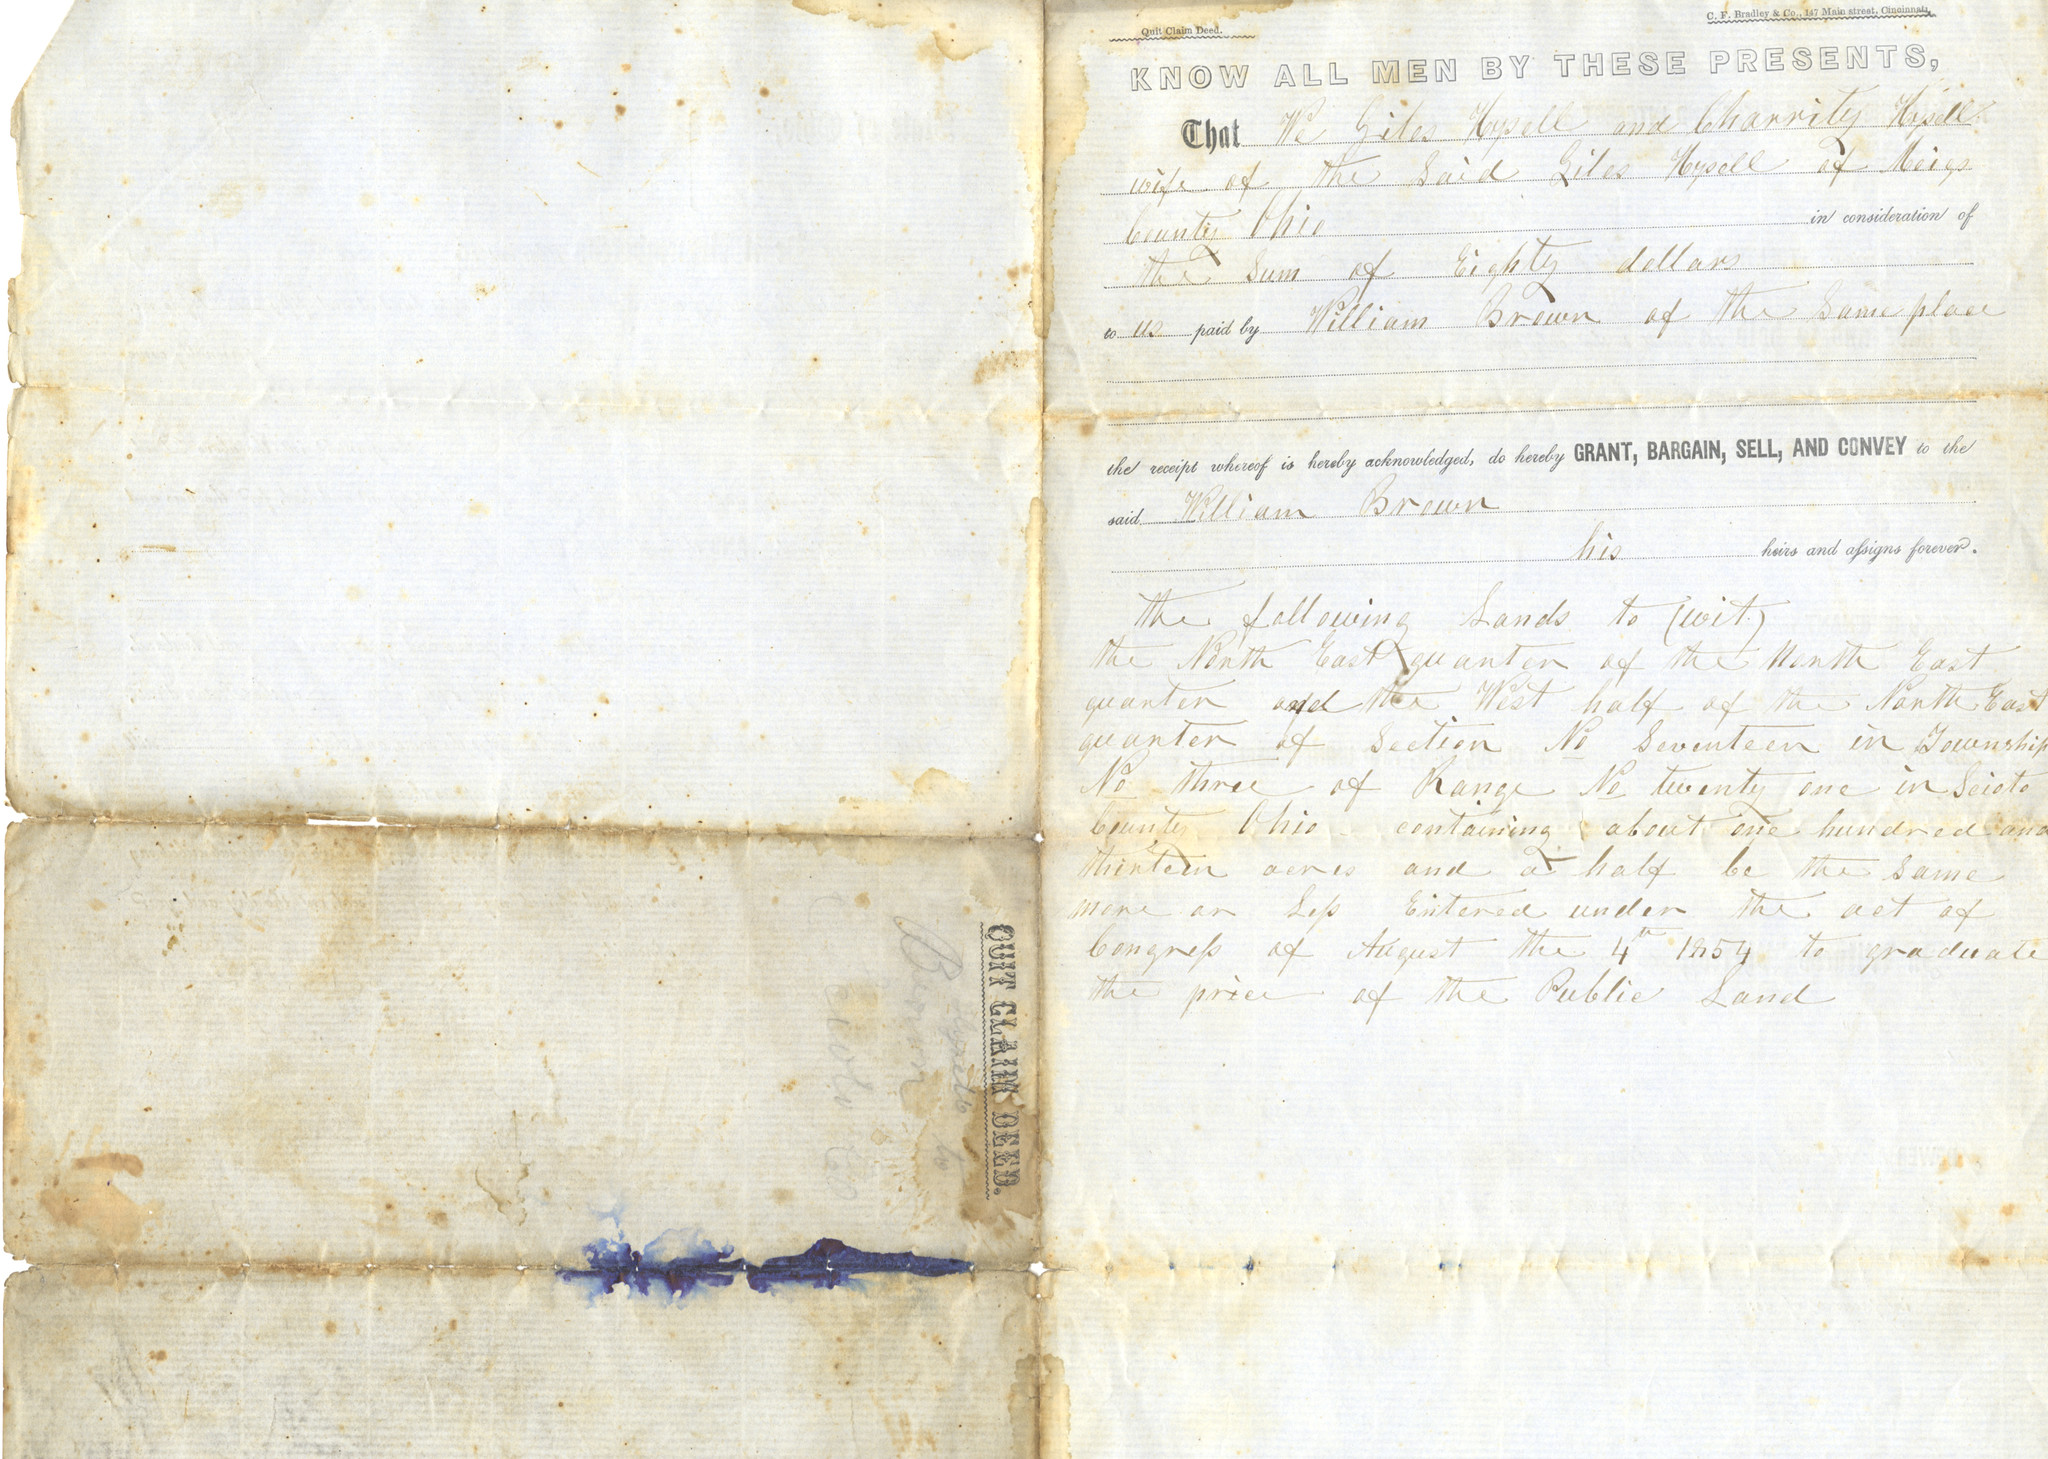 Quit Claim Deed.
C. F. Bradley & Co., 147 Main street, Cincinnati,
KNOW ALL MEN BY THESE PRESENTS,
That We Giles Hysell and Charrity Hysell
wife of the Said Giles Hysell of Meigs
County Ohio in consideration of
the Sum of Eighty dollars
to us paid by William Brown of the Same place
the receipt whereof is hereby acknowledged, do hereby GRANT, BARGAIN, SELL, AND CONVEY to the
said William Brown
his heirs and assigns forever.
the following Lands to (wit)
the North East quarter of the North East
quarter and the West half of the North East
quarter of Section No Seventeen in Township
No three of Range No twenty one in Scioto
County Ohio containing about one hundred and
thirteen acres and a half be the Same
more or Less Entered under the act of
Congress of August the 4th 1854 to graduate
the price of the Public Land
QUIT CLAIM DEED.
Hysell to
Brown